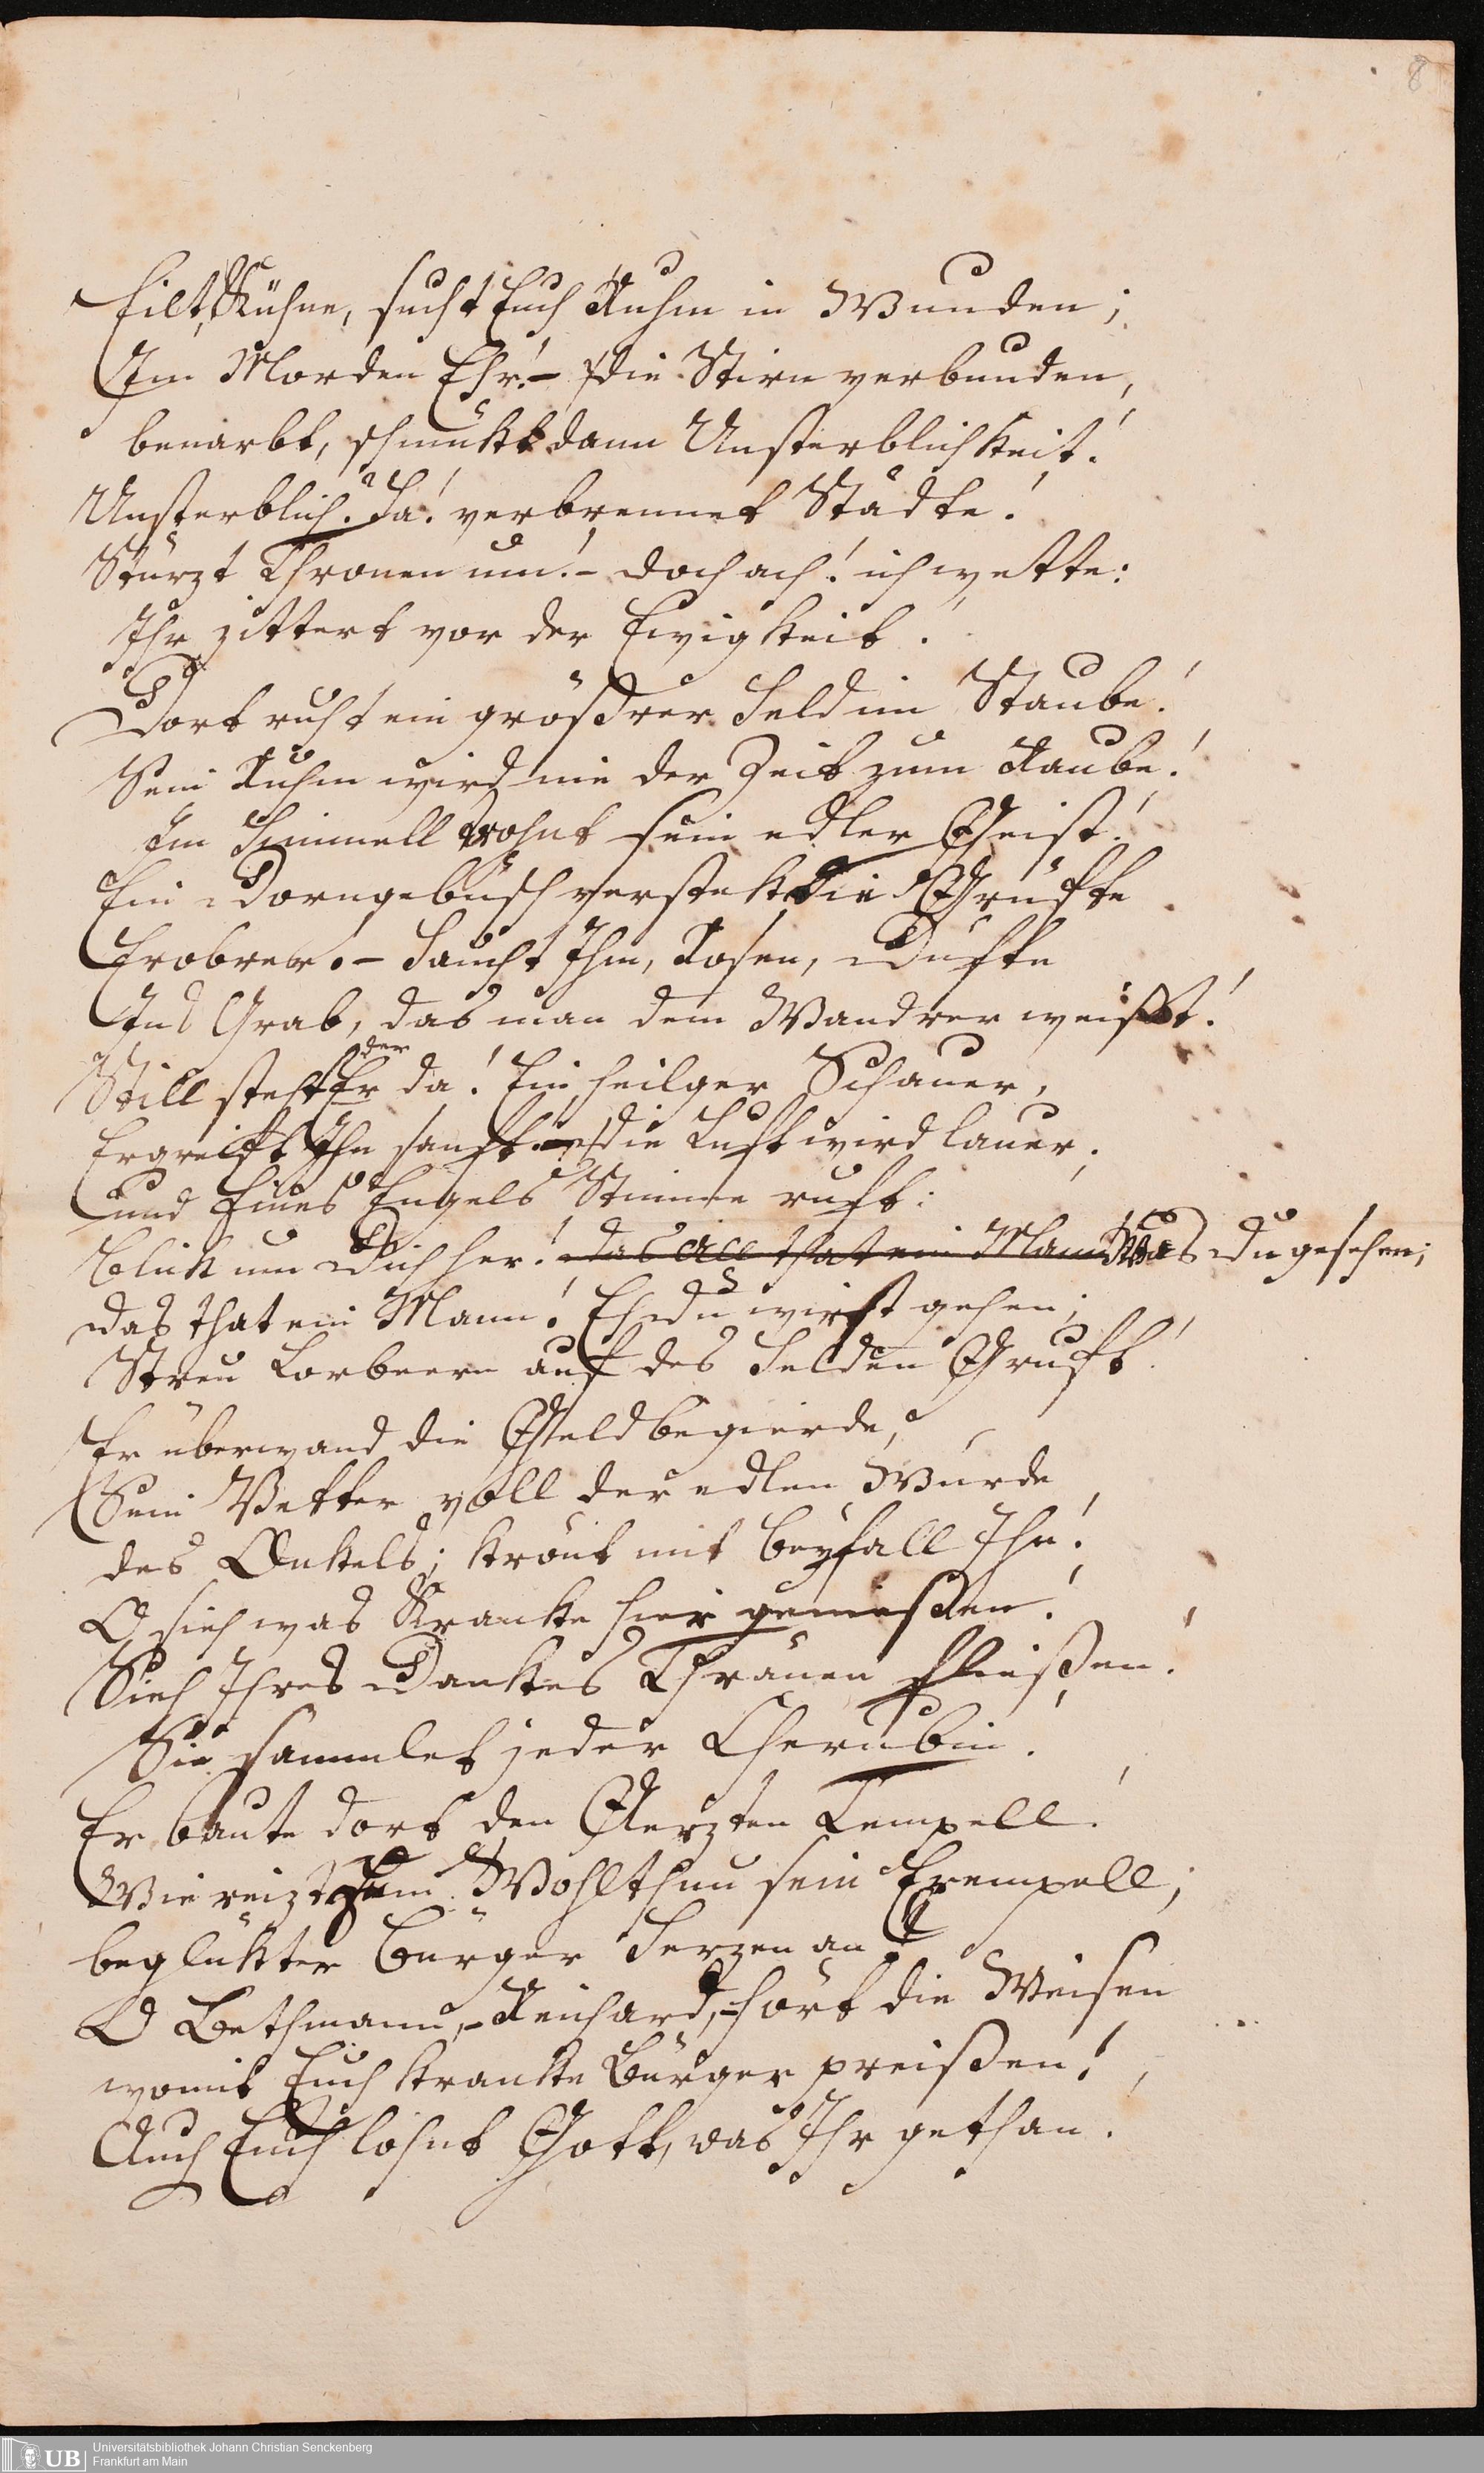 8
Eilt, Kühne, sucht Euch Ruhm in Wunden;
Im Morden Ehr! – die Stirn verbunden,
benarbt, schmükt dann Unsterblichkeit!
Unsterblich? Ja! verbrennet Städte!
Stürzt Thronen um! – doch ach! ich wette:
Ihr zittert vor der Ewigkeit.
Dort ruht ein größrer Held im Staube!
Sein Ruhm wird nie der Zeit zum Raube!
Im Himmell wohnt sein edler Geist!
Ein Dorngebüsch verstekt die Grüfte
Erobrer. – Haucht Ihm, Rosen, Düfte
Ins Grab, das man dem Wandrer weißt!
Still steht Er der da! Ein heilger Schauer,
Ergreift Ihn sanft. – die Luft wird lauer,
und Eines Engels Stimme ruft:
Blick um Dich her! das All that ein Mann Was Du gesehen;
das that ein Mann! Eh Du wirst gehen;
Streu Lorbeern auf des Helden Gruft!
Er überwand die Geldbegierde,
Sein Vetter voll der edlen Würde
des Onkels; krönt mit Beyfall Ihn!
O sieh was Kranke hier genießen!
Sieh Ihres Dankes Thränen fließen!
Sie sammlet jeder Cherubin!
Er baute dort den Aerzten Tempell!
Wie reizt zum Wohlthun sein Exempell;
beglükter Bürger Herzen an
O Bethmann, – Reinhard, – hört die Weisen
womit Euch kranke Bürger preißen!
Auch Euch lohnt Gott, was Ihr gethan.
UB
Universitätsbibliothek Johann Christian Senckenberg
Frankfurt am Main